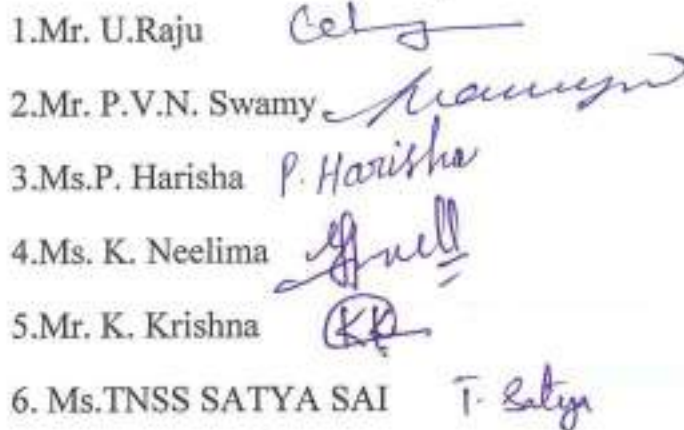 1.Mr. U.Raju
2.Mr. P.V.N. Swamy
3.Ms.P. Harisha P. Harisha
4.Ms. K. Neelima
5.Mr. K. Krishna KK
6. Ms.TNSS SATYA SAI T. Satya